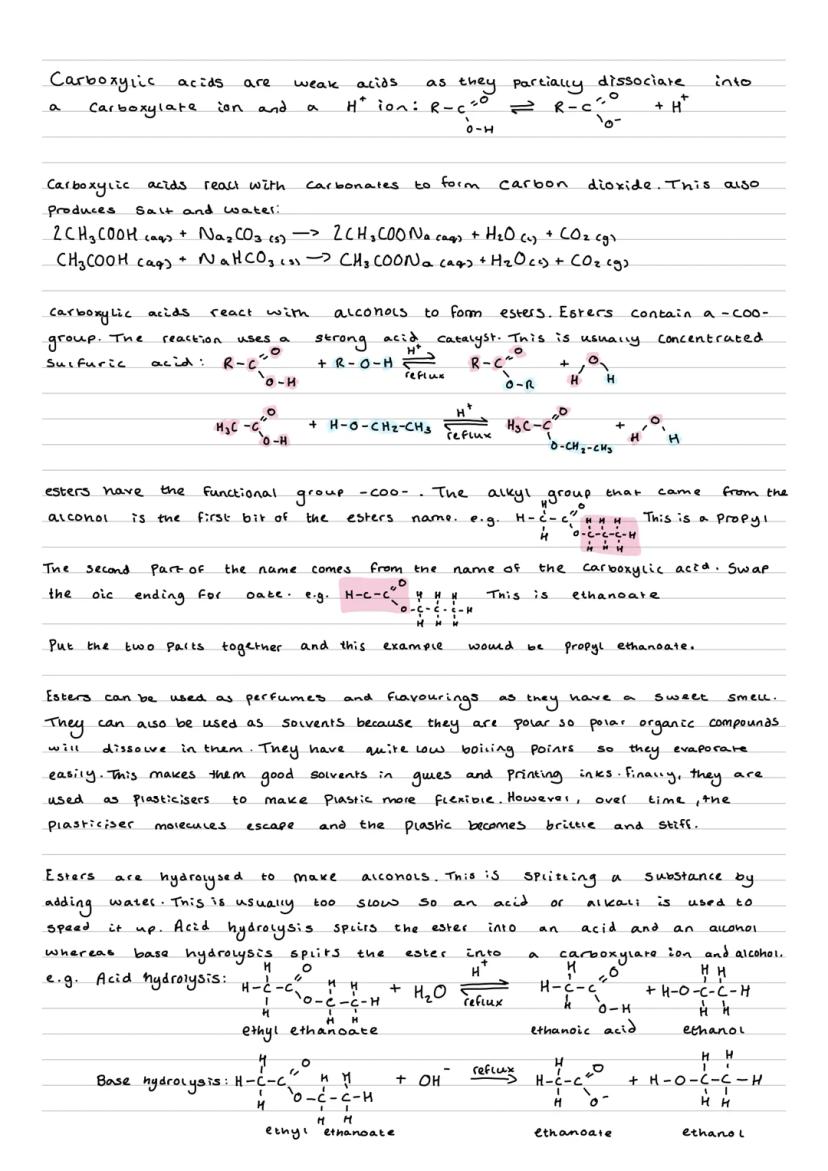 Carboxylic acids are weak acids as they partially dissociate into
a carboxylate ion and a H⁺ ion: R-C=O O-H ⇌ R-C=O O⁻ + H⁺
Carboxylic acids react with carbonates to form carbon dioxide. This also
produces salt and water:
2CH₃COOH (aq) + Na₂CO₃ (s) → 2CH₃COONa (aq) + H₂O (l) + CO₂ (g)
CH₃COOH (aq) + NaHCO₃ (s) → CH₃COONa (aq) + H₂O (l) + CO₂ (g)
carboxylic acids react with alcohols to form esters. Esters contain a -COO-
group. The reaction uses a strong acid catalyst. This is usually concentrated
sulfuric acid: R-C=O O-H + R-O-H H⁺ ⇌ reflux R-C=O O-R + H O H
H₃C-C=O O-H + H-O-CH₂-CH₃ H⁺ ⇌ reflux H₃C-C=O O-CH₂-CH₃ + H O H
esters have the functional group -COO-. The alkyl group that came from the
alcohol is the first bit of the esters name. e.g. H H-C-C=O H O-C-C-C-H H H H H H H This is a propyl
The second part of the name comes from the name of the carboxylic acid. Swap
the oic ending for oate. e.g. H-C-C=O O-C-C-C-H H H H H H H This is ethanoate
Put the two parts together and this example would be propyl ethanoate.
Esters can be used as perfumes and flavourings as they have a sweet smell.
They can also be used as solvents because they are polar so polar organic compounds
will dissolve in them. They have quite low boiling points so they evaporate
easily. This makes them good solvents in glues and printing inks. Finally, they are
used as plasticisers to make plastic more flexible. However, over time, the
plasticiser molecules escape and the plastic becomes brittle and stiff.
Esters are hydrolysed to make alcohols. This is splitting a substance by
adding water. This is usually too slow so an acid or alkali is used to
speed it up. Acid hydrolysis splits the ester into an acid and an alcohol
whereas base hydrolysis splits the ester into a carboxylate ion and alcohol.
e.g. Acid hydrolysis: H H-C-C=O H O-C-C-H H H H H + H₂O H⁺ ⇌ reflux H H-C-C=O H O-H + H-O-C-C-H H H H H
ethyl ethanoate ethanoic acid ethanol
Base hydrolysis: H H-C-C=O H O-C-C-H H H H H + OH⁻ reflux → H H-C-C=O H O⁻ + H-O-C-C-H H H H H
ethyl ethanoate ethanoate ethanol